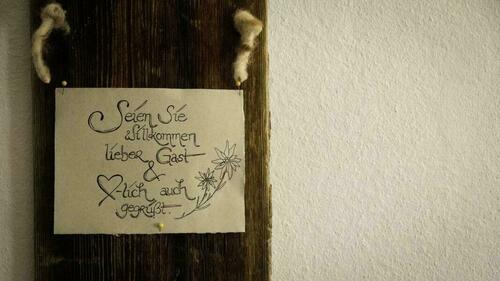 Seien Sie
willkommen
lieber Gast
&
♡-lich auch
gegrüßt.